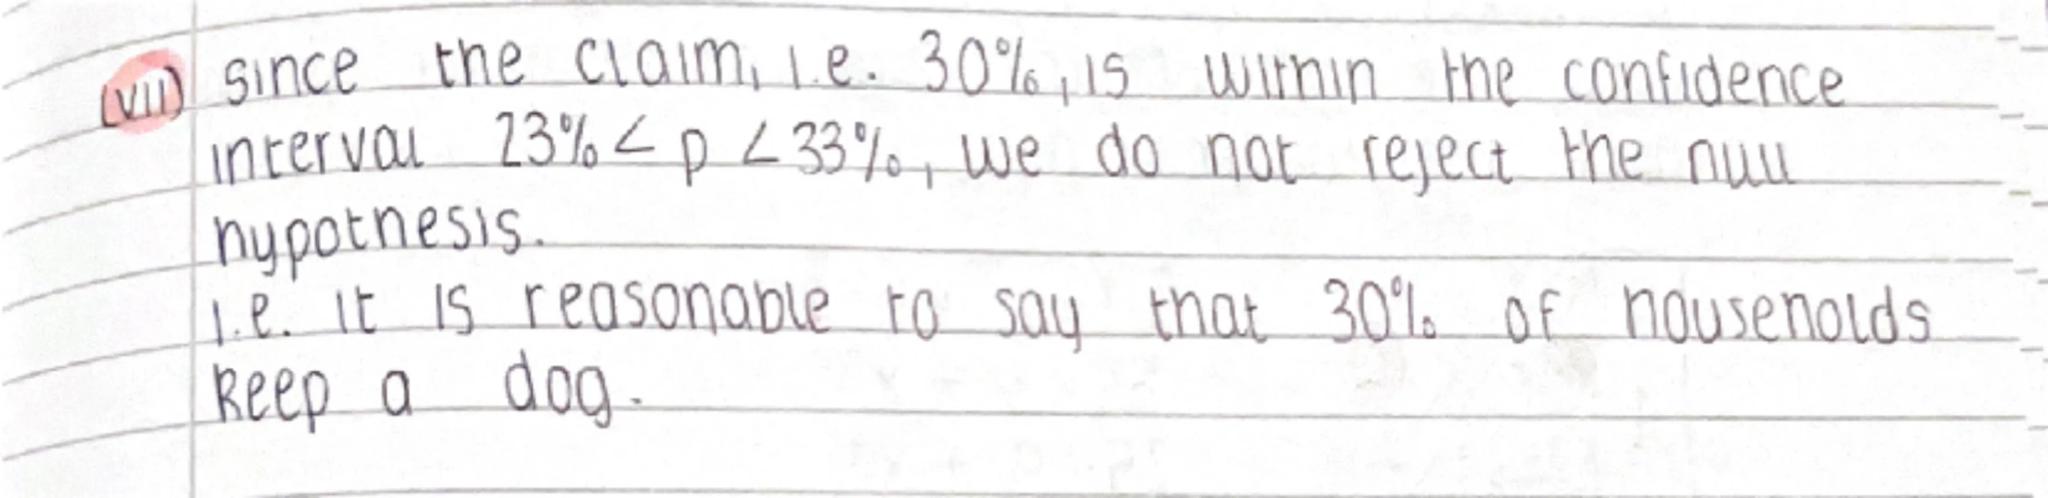 (vii) since the claim, i.e. 30%, is within the confidence
interval 23% < p < 33%, we do not reject the null
hypothesis.
i.e. it is reasonable to say that 30% of households
keep a dog.